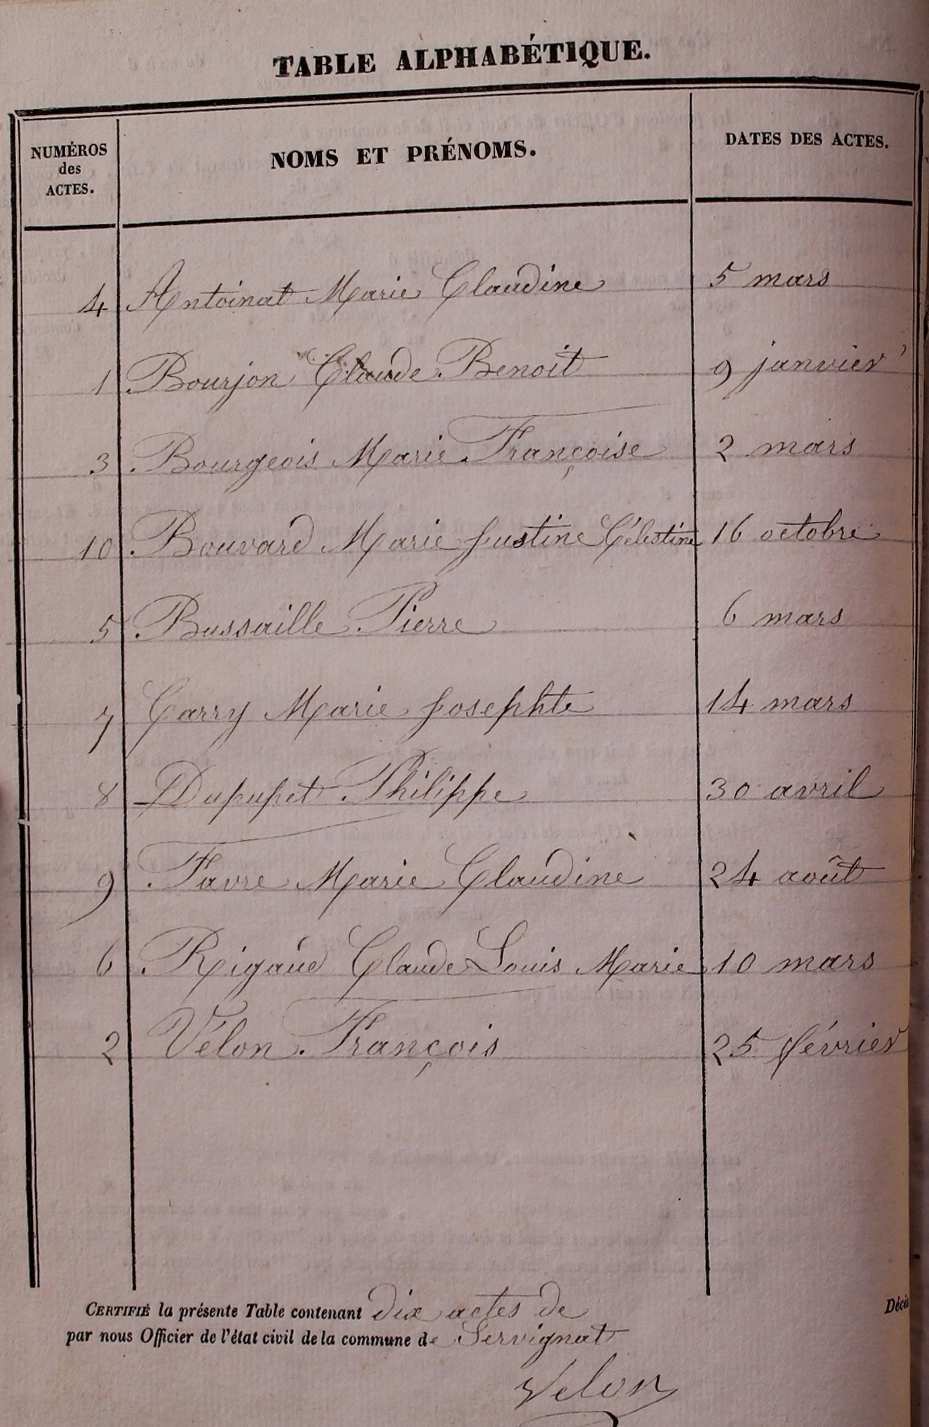 TABLE ALPHABÉTIQUE.
NUMÉROS des ACTES. NOMS ET PRÉNOMS. DATES DES ACTES.
4 Antoinat Marie Claudine 5 mars
1 Bourjon Claude Benoit 9 janvier
3 Bourgeois Marie Françoise 2 mars
10 Bouvard Marie Justine Célestine 16 octobre
5 Bussaille Pierre 6 mars
7 Carry Marie Josephte 14 mars
8 Dupupet Philippe 30 avril
9 Favre Marie Claudine 24 août
6 Rigaud Claude Louis Marie 10 mars
2 Vélon François 25 février
CERTIFIÉ la présente Table contenant dix actes de
par nous Officier de l'état civil de la commune de Servignat
Velon